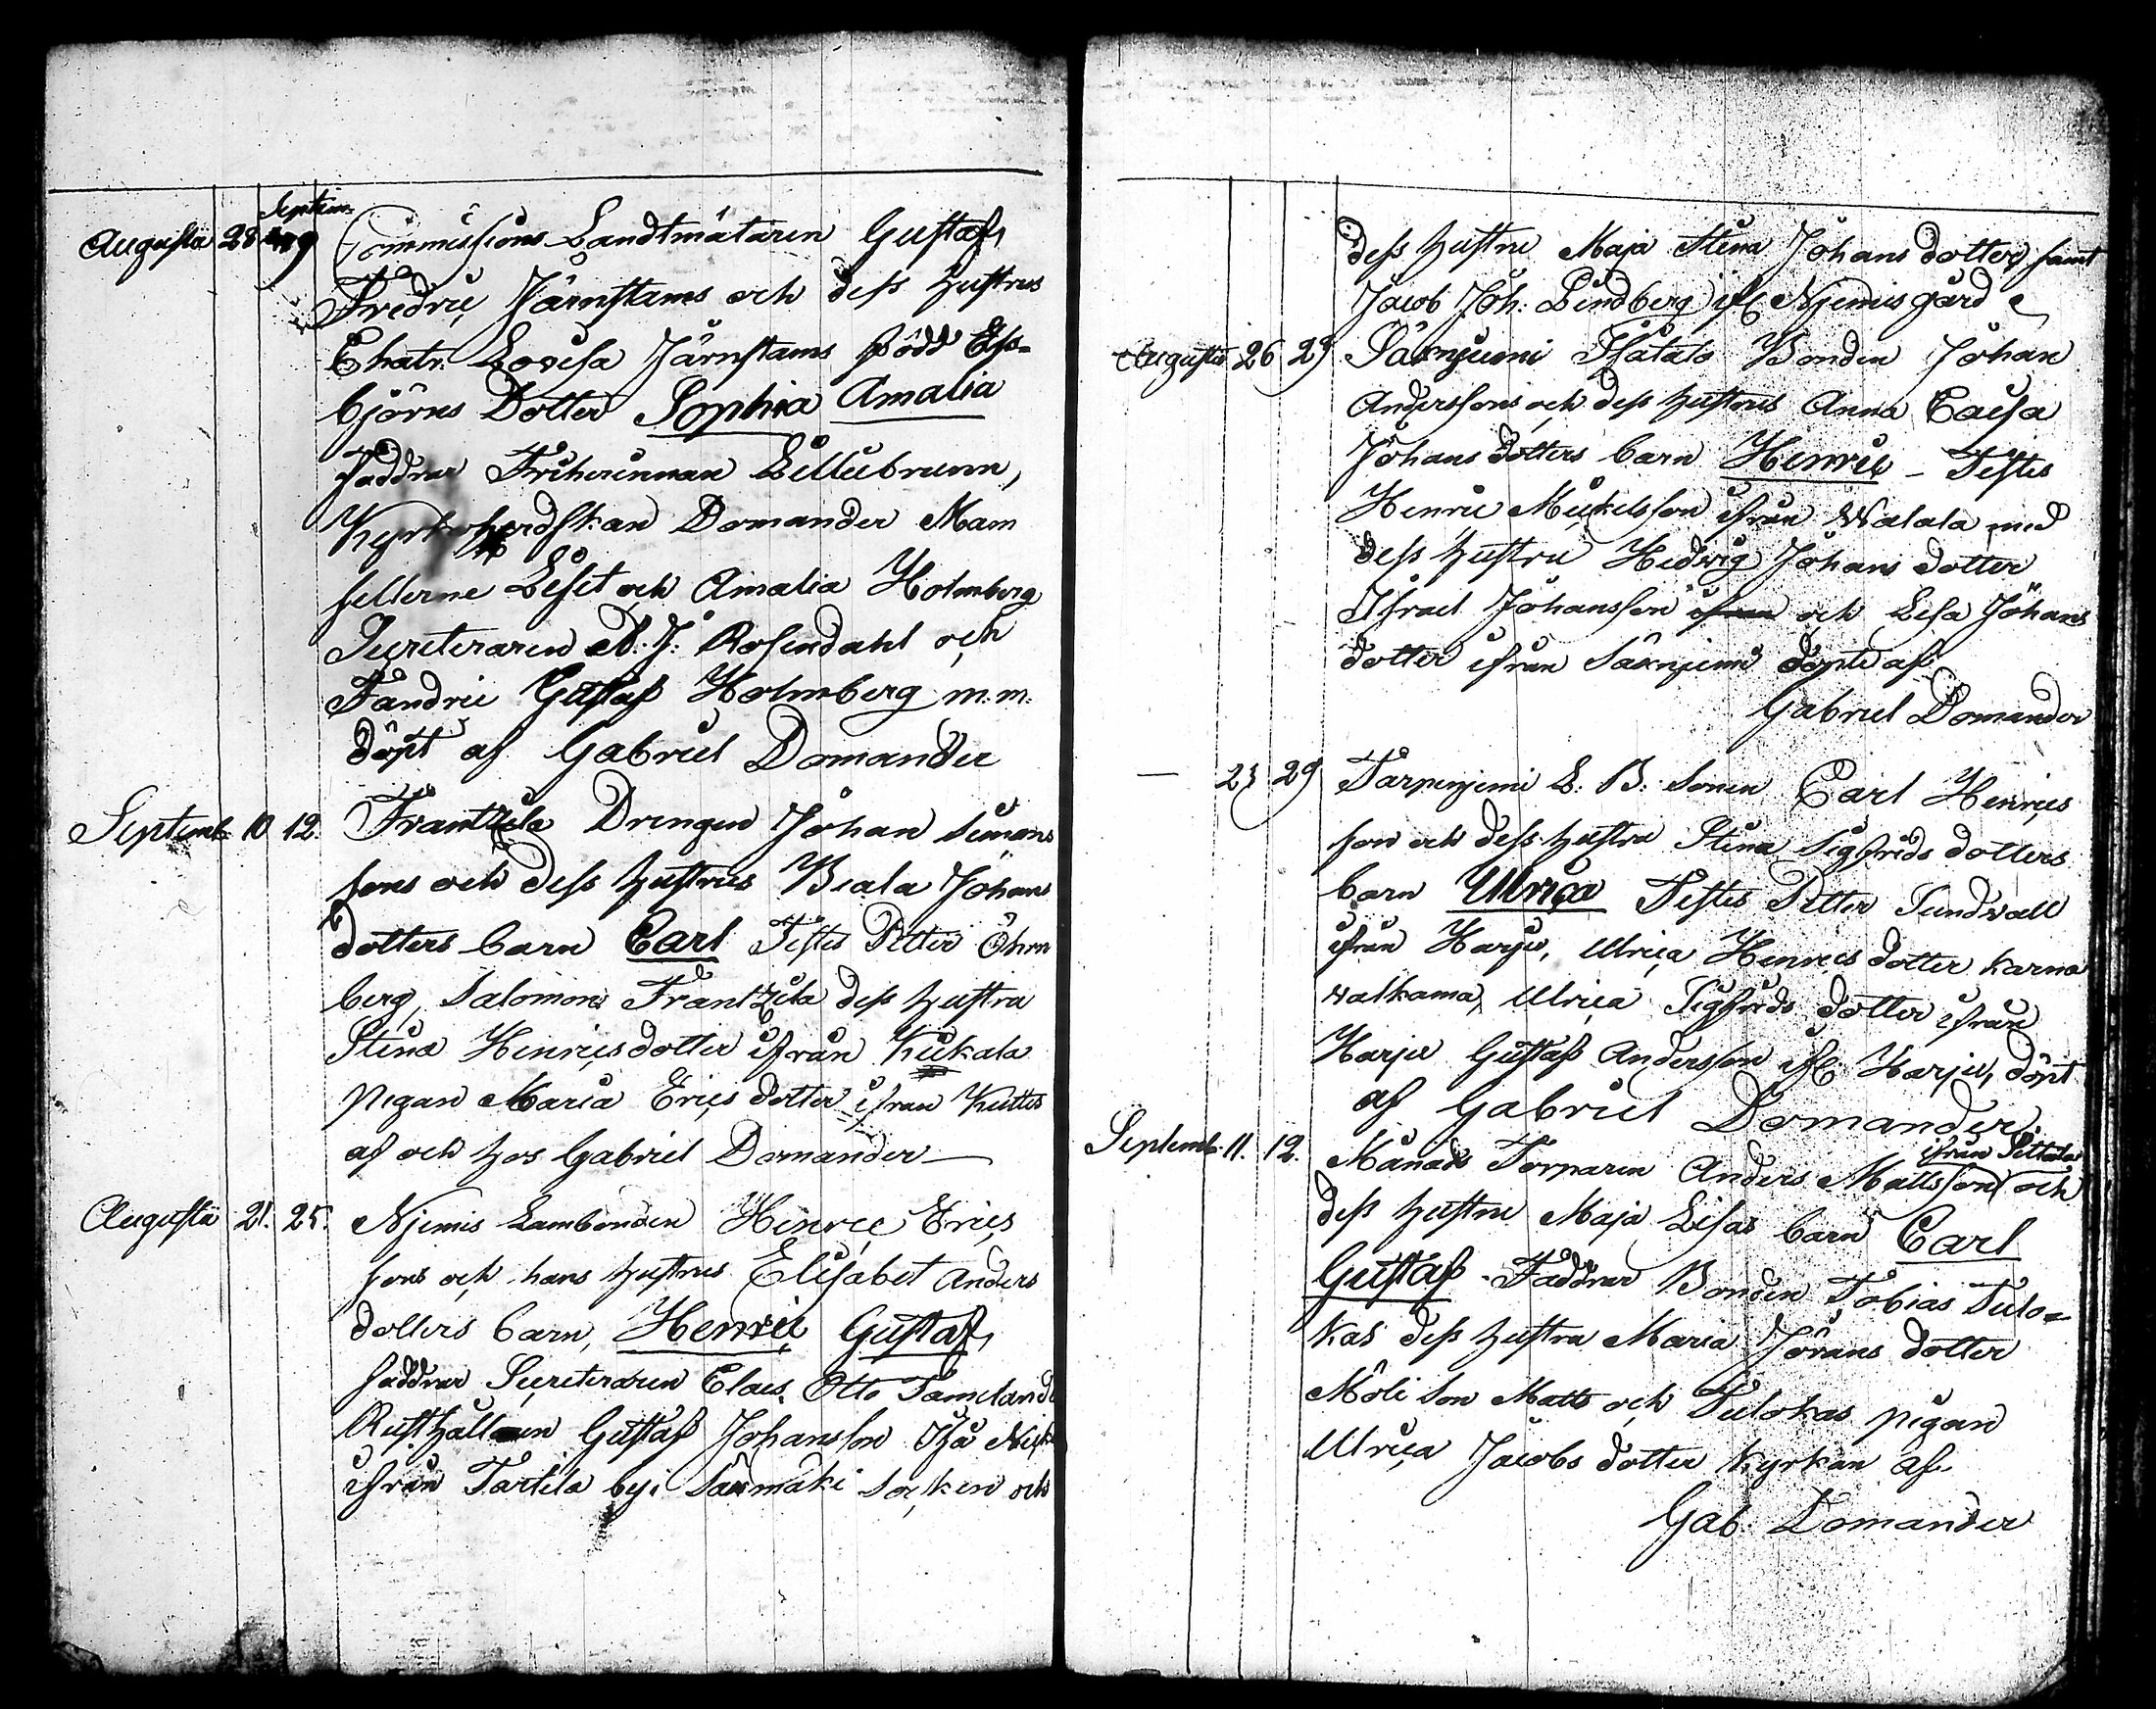 Septem:
Augusti 28 9 Commissions Landtmätaren Gustaf
Fredric Järnstams och dess hustrus
Chatr: Lovisa Järnstams född Ess-
björns Dotter Sophia Amalia
faddrar Friherinnan Lilliebrunn,
Kyrkoherdskan Domander Mam
sellerne Liset och Amalia Holmberg
Secreteraren A. J: Rosendahl och
Fändric Gustaf Holmberg m:m:
döpt af Gabriel Domander
Septemb 10 12. Frantzila Drengen Johan Simons
sons och dess hustrus Beata Johans
dotters barn Carl Testes Petter Öhrn
berg, Salomon Frantzila dess hustru
Stina Henrics dotter ifrån Kiikala
pigan Maria Erics dotter ifrån
af och hos Gabriel Domander
Augusti 21. 25. Njemis Lambonden Henric Erics
sons och hans hustrus Elisabet Anders
dotters barn, Henric Gustaf,
faddrar Secreteraren Claes Otto Tamelander
Rusthållaren Gustaf Johansson
ifrån Tartila by i Säxmäki Socken och
dess hustru Maja Stina Johans dotter, samt
Jacob Joh: Lindberg if: Njemis gård
Augusti 26 29 Säxnjemi Bonden Johan
Anderssons och dess hustrus Anna Caisa
Johans dotters barn Henric - Testes
Henric Mickelsson ifrån Walala med
dess hustru Hedvig Johans dotter
Israel Johansson ifrån och Lisa Johans
dotter ifrån Säxnjemi döpte af
Gabriel Domander
— 23 29 Tarpenjemi L: B: Sonen Carl Henrics
son och dess hustru Stina Sigfrids dotters
barn Ulrica Testes Petter Sundvall
ifrån Harju, Ulrica Henrics dotter Karna
valkama, Ulrica Sigfrids dotter ifrån
Harju Gustaf Andersson if: Harju, döpt
af Gabriel Domander.
Septemb. 11. 12. Månads Torparen Anders Mattsson ifrån och
dess hustru Maja Lisas barn Carl
Gustaf - Faddrar Bonden Tobias Tulo-
kas dess hustru Maria Jörans dotter
Möli Son Matts och Tulokas pigan
Ulrica Jacobs dotter Kyrkan af.
Gab. Domander